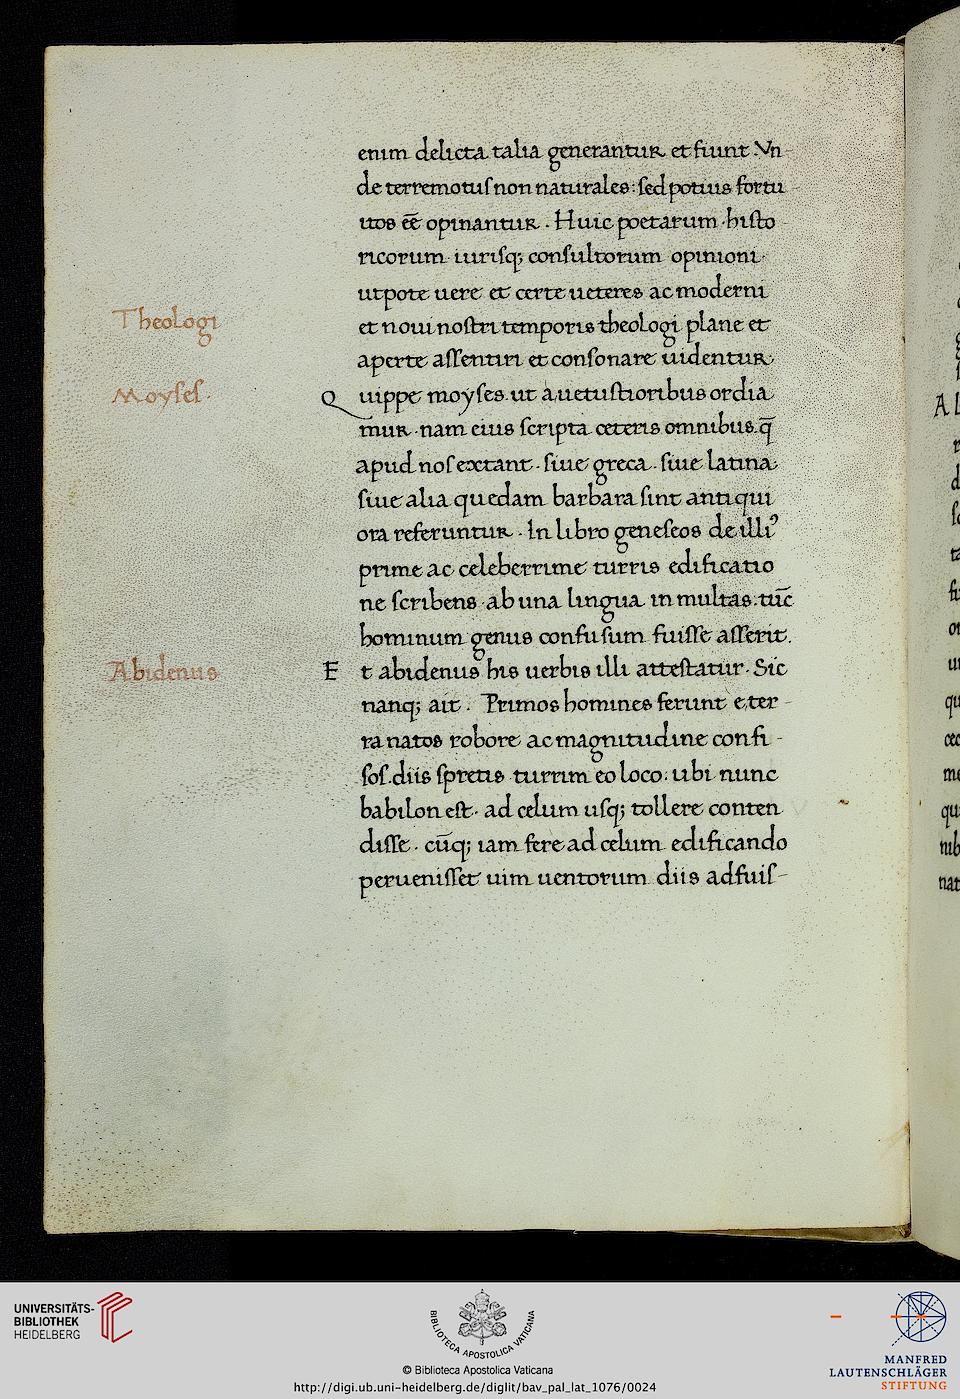 enim delicta talia generantur et fiunt. Vn-
de terremotus non naturales: sed potius fortu
itos eē opinantur. Huic poetarum histo
ricorum iurisq; consultorum opinioni
utpote uere et certe ueteres ac moderni
Theologi
et noui nostri temporis theologi plane et
aperte assentiri et consonare uidentur
Moyses.
Quippe moyses ut a uetustioribus ordia
mur. nam eius scripta ceteris omnibus. q̄
apud nos extant. siue greca. siue latina
siue alia quedam barbara sint antiqui
ora referuntur. In libro geneseos de illiꝰ
prime ac celeberrime turris edificatio
ne scribens ab una lingua in multas. tūc
hominum genus confusum fuisse asserit.
Abidenus
Et abidenus his uerbis illi attestatur. Sic
nanq; ait. Primos homines ferunt e, ter-
ra natos robore ac magnitudine confi-
sos. diis spretis turrim eo loco. ubi nunc
babilon est. ad celum usq; tollere conten
disse. cūq; iam fere ad celum edificando
peruenisset uim uentorum diis adfuis-
UNIVERSITÄTS-
BIBLIOTHEK
HEIDELBERG
BIBLIOTECA APOSTOLICA VATICANA
© Biblioteca Apostolica Vaticana
http://digi.ub.uni-heidelberg.de/diglit/bav_pal_lat_1076/0024
MANFRED
LAUTENSCHLÄGER
STIFTUNG